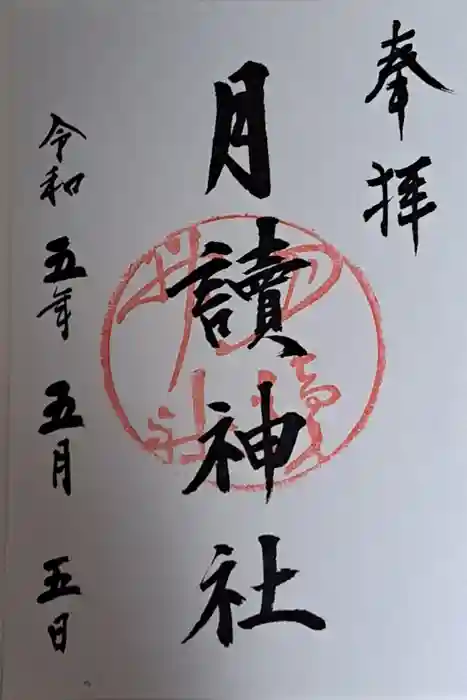 奉拝
月讀神社
令和五年五月五日